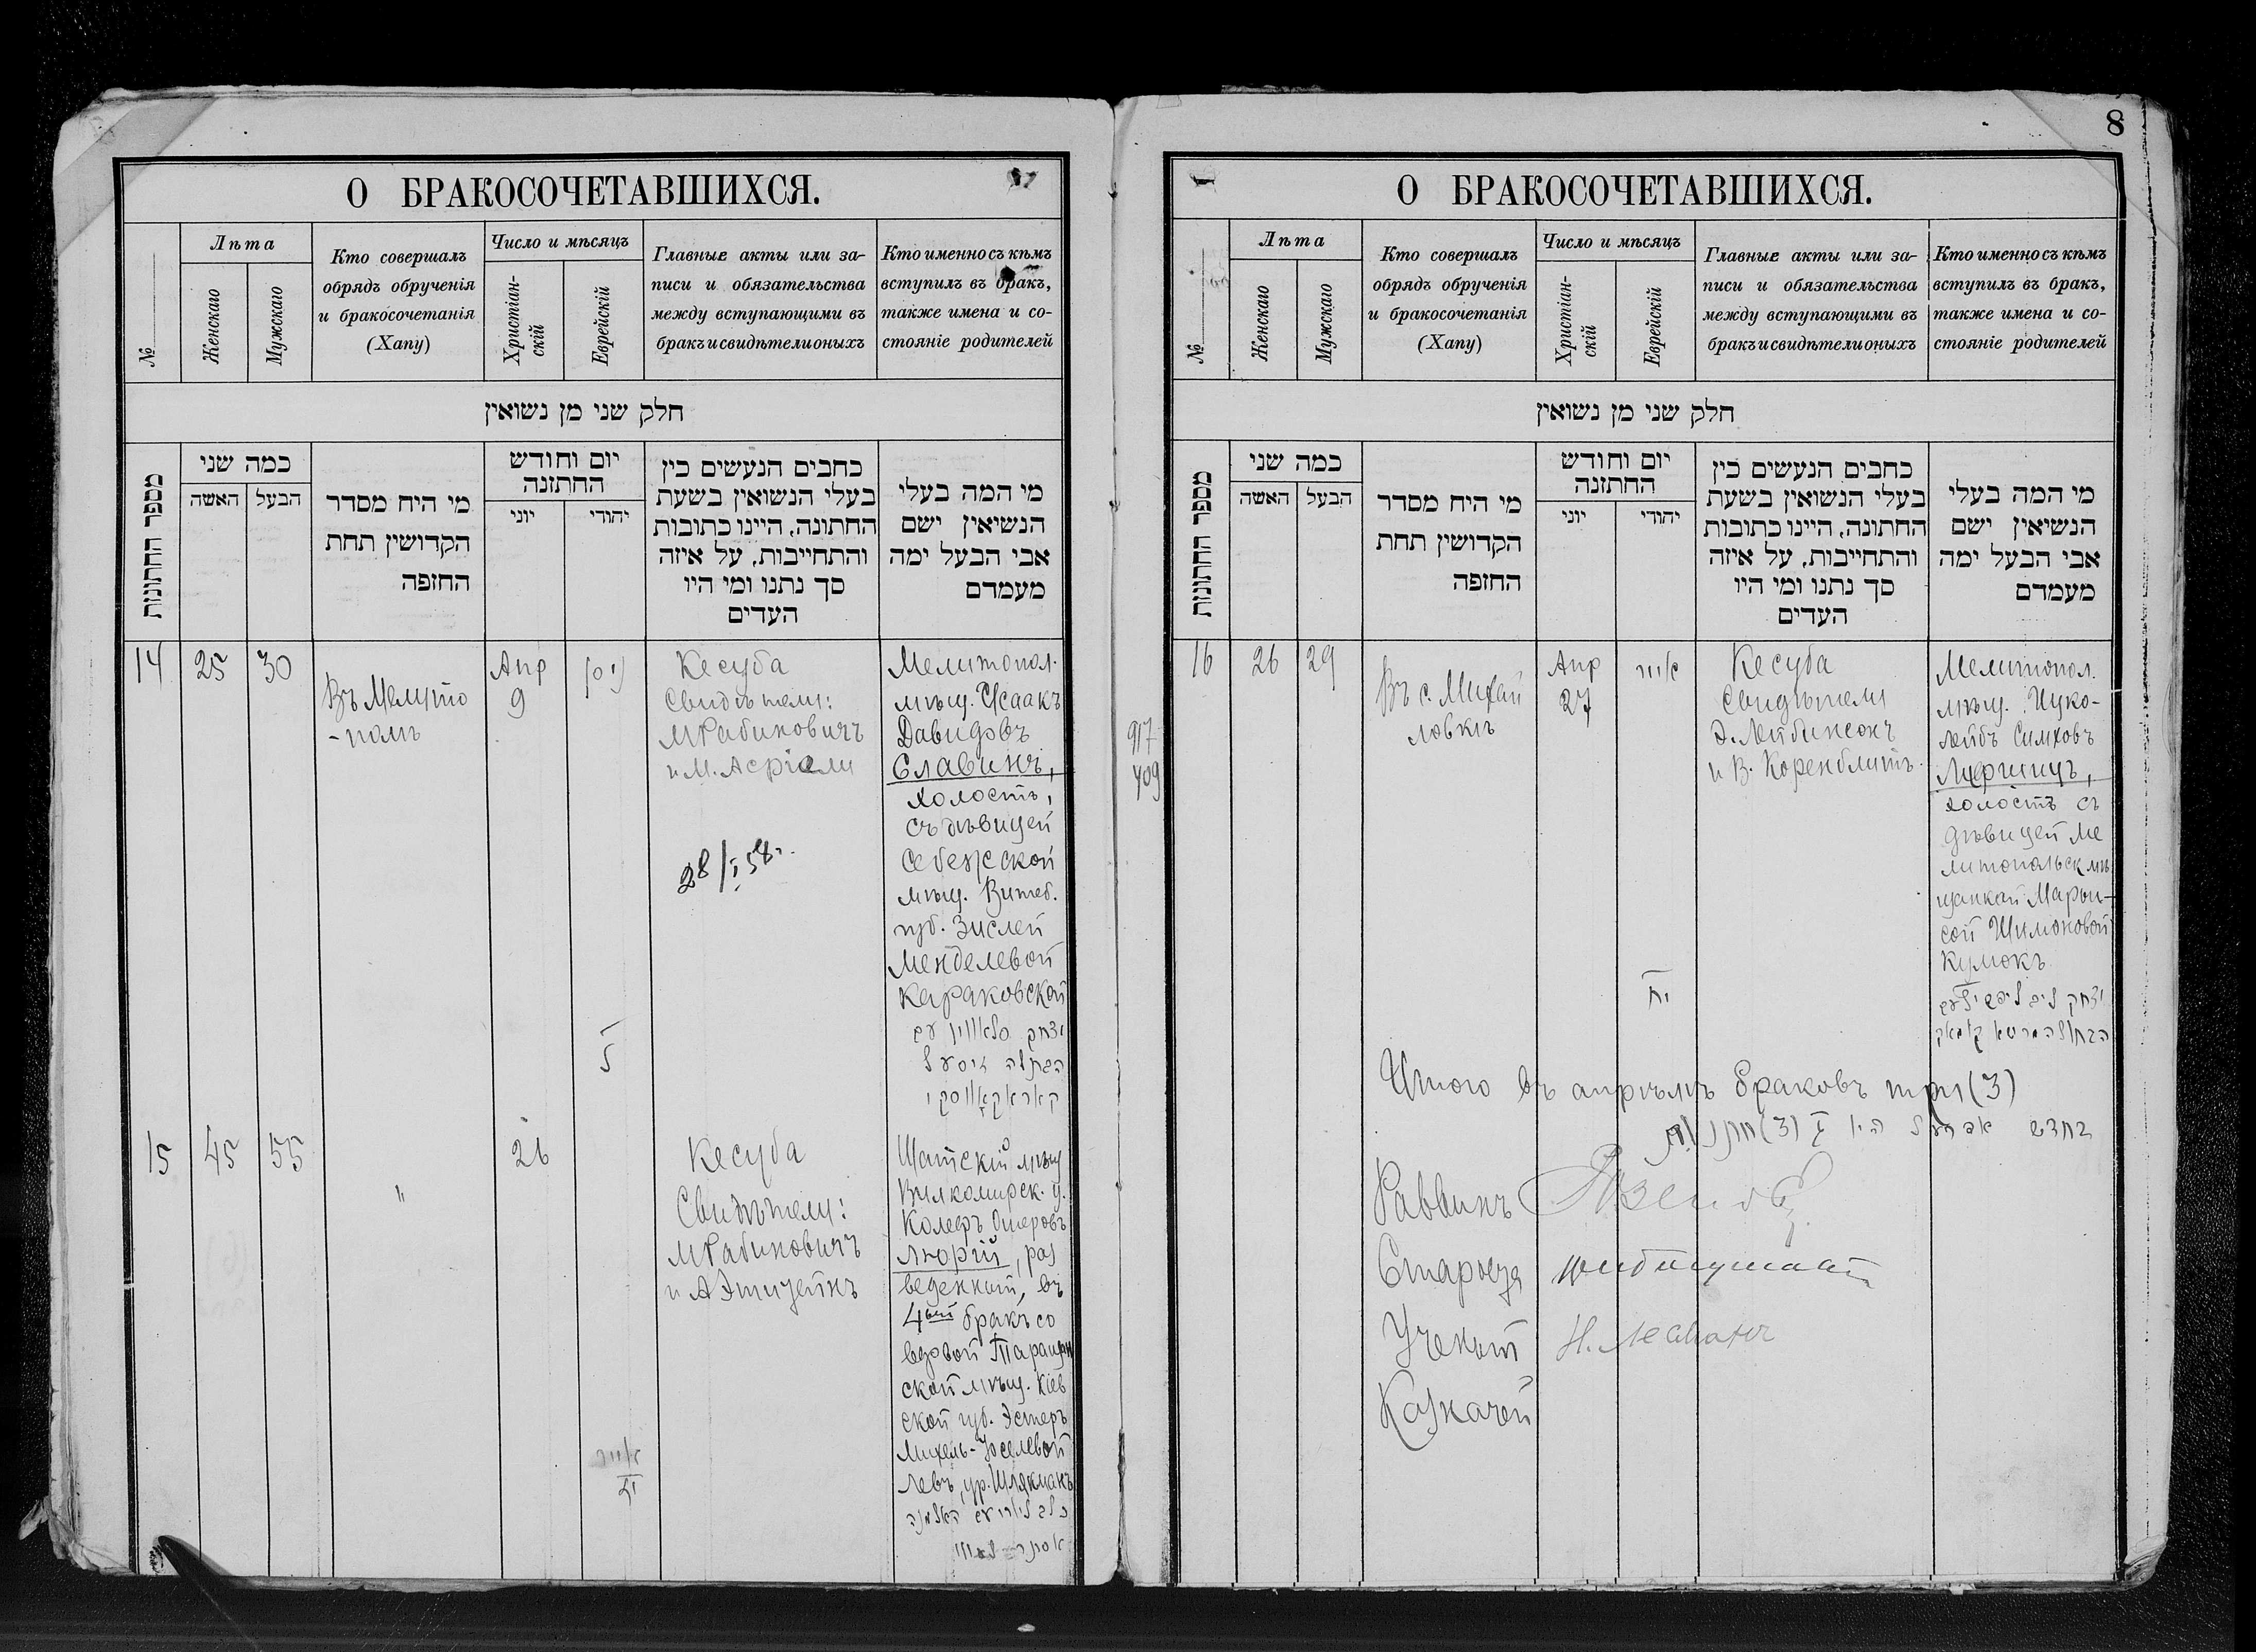 О БРАКОСОЧЕТАВШИХСЯ.
№
Лѣта
Женскаго
Мужскаго
Кто совершалъ
обрядъ обрученія
и бракосочетанія
(Хапу)
Число и мѣсяцъ
Христіан-
скій
Еврейскій
Главные акты или за-
писи и обязательства
между вступающими въ
бракъ и свидѣтели оныхъ
Кто именно съ кѣмъ
вступилъ въ бракъ,
также имена и со-
стояніе родителей
חלק שני מן נשואין
מספר החתונות
כמה שני
האשה
הבעל
מי היח מסדר
הקדושין תחת
החופה
יום וחודש
החתונה
יוני
יהודי
כחבים הנעשים כין
בעלי הנשואין בשעת
החתונה, היינו כתובות
והתחייבות, על איזה
סך נתנו ומי היו
העדים
מי המה בעלי
הנשיאין ישם
אבי הבעל ימה
מעמדם
14
25
30
Въ Мелито
-полѣ
Апр
9
ניסן
ל
Кесуба
Свидѣтели:
М Рабиновичъ
и М. Асріели
28/I 58 г.
Мелитопол.
мѣщ. Исаакъ
Давидовъ
Славинъ,
холостъ,
съ дѣвицей
Себежской
мѣщ. Витеб.
губ. Зислей
Менделевой
Караковской
יצחק סלאווין עם
הבתולה זיסעל
קאראקאווסקי
15
45
55
"
26
אייר
יז
Кесуба
Свидѣтели:
М Рабиновичъ
и А Эпштейнъ
Шатскій мѣщ
Вилкомирск. у.
Калефъ Ошеровъ
Люрій, раз
веденный, въ
4ый бракъ со
вдовой Таращан
ской мѣщ. Кіев
ской губ. Эстеръ
Михель-Іоселевой
Левъ, ур. Шлякманъ
כלב ליורי עם האלמנה
אסתר
8
О БРАКОСОЧЕТАВШИХСЯ.
№
Лѣта
Женскаго
Мужскаго
Кто совершалъ
обрядъ обрученія
и бракосочетанія
(Хапу)
Число и мѣсяцъ
Христіан-
скій
Еврейскій
Главные акты или за-
писи и обязательства
между вступающими въ
бракъ и свидѣтели оныхъ
Кто именно съ кѣмъ
вступилъ въ бракъ,
также имена и со-
стояніе родителей
חלק שני מן נשואין
מספר החתונות
כמה שני
האשה
הבעל
מי היח מסדר
הקדושין תחת
החופה
יום וחודש
החתונה
יוני
יהודי
כחבים הנעשים כין
בעלי הנשואין בשעת
החתונה, היינו כתובות
והתחייבות, על איזה
סך נתנו ומי היו
העדים
מי המה בעלי
הנשיאין ישם
אבי הבעל ימה
מעמדם
917
409
16
26
29
Въ с. Михай
ловкѣ
Апр
27
אייר
יח
Кесуба
Свидѣтели
Э. Лейбинсонъ
и В. Коренблитъ
Мелитопол.
мѣщ. Ицко-
Лейбъ Симховъ
Лифшицъ,
холостъ съ
дѣвицей Ме
литопольск мѣ
щанкой Марьи-
сой Шимоновой
Кумокъ
יצחק ליב ליפשיץ עם
הבתולה מריסא קומאק
Итого въ апрѣлѣ браковъ три (3)
בחדש אפריל היו ג (3) חתנות
Раввинъ
Староста
Ученый
Казначей